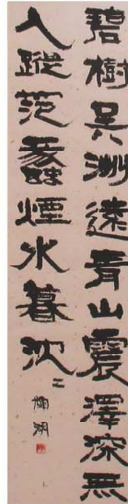 碧樹吳洲遠青山震澤深無
人蹤范蠡煙水暮沈〻